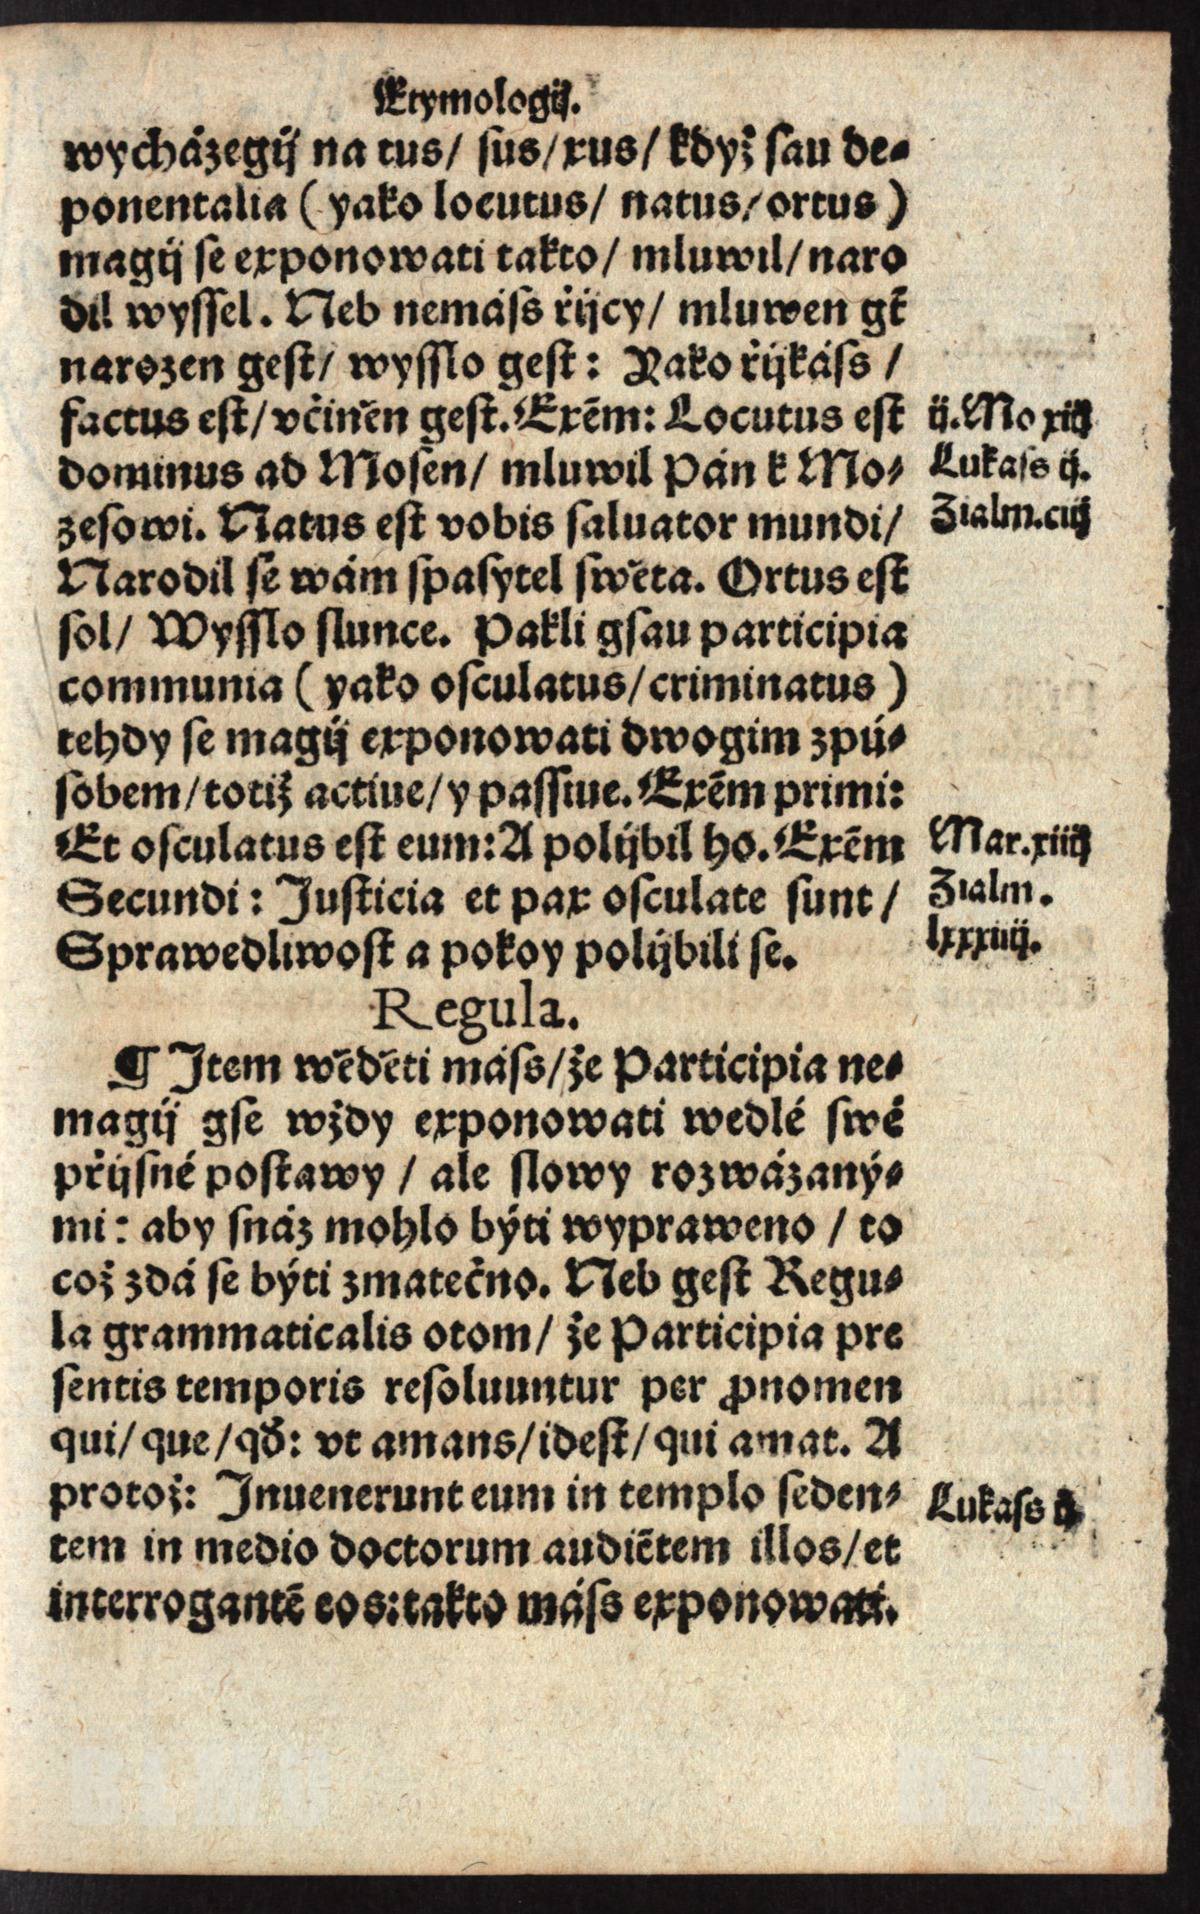 Etymologij.
wycházegij na tus/ sus/xus/ když sau de-
ponentalia ( yako locutus/ natus/ ortus )
magij se exponowati takto/ mluwil/ naro
dil wyssel. Neb nemáss řijcy/ mluwen gt̄
narozen gest/ wysslo gest: Yako řijkáss /
factus est/ včiněn gest. Exēm: Locutus est
dominus ad Mosen/ mluwil Pán k Mo-
zesowi. Natus est vobis saluator mundi/
Narodil se wám spasytel swěta. Ortus est
sol/ Wysslo slunce. Pakli gsau participia
communia ( yako osculatus/ criminatus )
tehdy se magij exponowati dwogim zpú-
sobem/ totiž actiue/ y passiue. Exēm primi:
Et osculatus est eum: A polijbil ho. Exēm
Secundi: Justicia et pax osculate sunt /
Sprawedliwost a pokoy polijbili se.
Regula.
¶ Jtem wěděti máss/ že Participia ne-
magij gse wždy exponowati wedlé swé
přijsné postawy / ale slowy rozwázaný-
mi: aby snáz mohlo býti wypraweno / to
což zdá se býti zmatečno. Neb gest Regu-
la grammaticalis otom/ že Participia pre
sentis temporis resoluuntur per ꝓnomen
qui/ que /qď: vt amans/ idest/ qui amat. A
protož: Jnuenerunt eum in templo seden-
tem in medio doctorum audiētem illos/ et
interrogantē eos: takto máss exponowati.
ij. Mo xiij
Lukass ij.
Zialm. ciij
Mar. xiiij
Zialm.
lxxxiiij.
Lukass ij